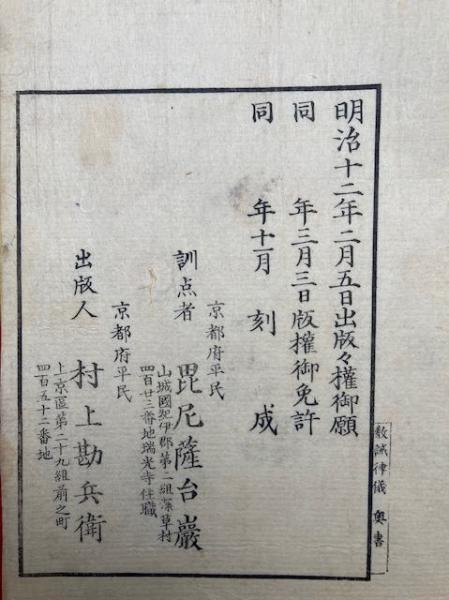 教誡律儀 奥書
明治十二年二月五日出版々權御願
同 年三月三日版權御免許
同 年十一月 刻成
京都府平民
訓点者 毘尼薩台巖
山城國紀伊郡第二組深草村
四百廿三番地瑞光寺住職
京都府平民
出版人 村上勘兵衛
上京區第二十九組前之町
四百五十二番地